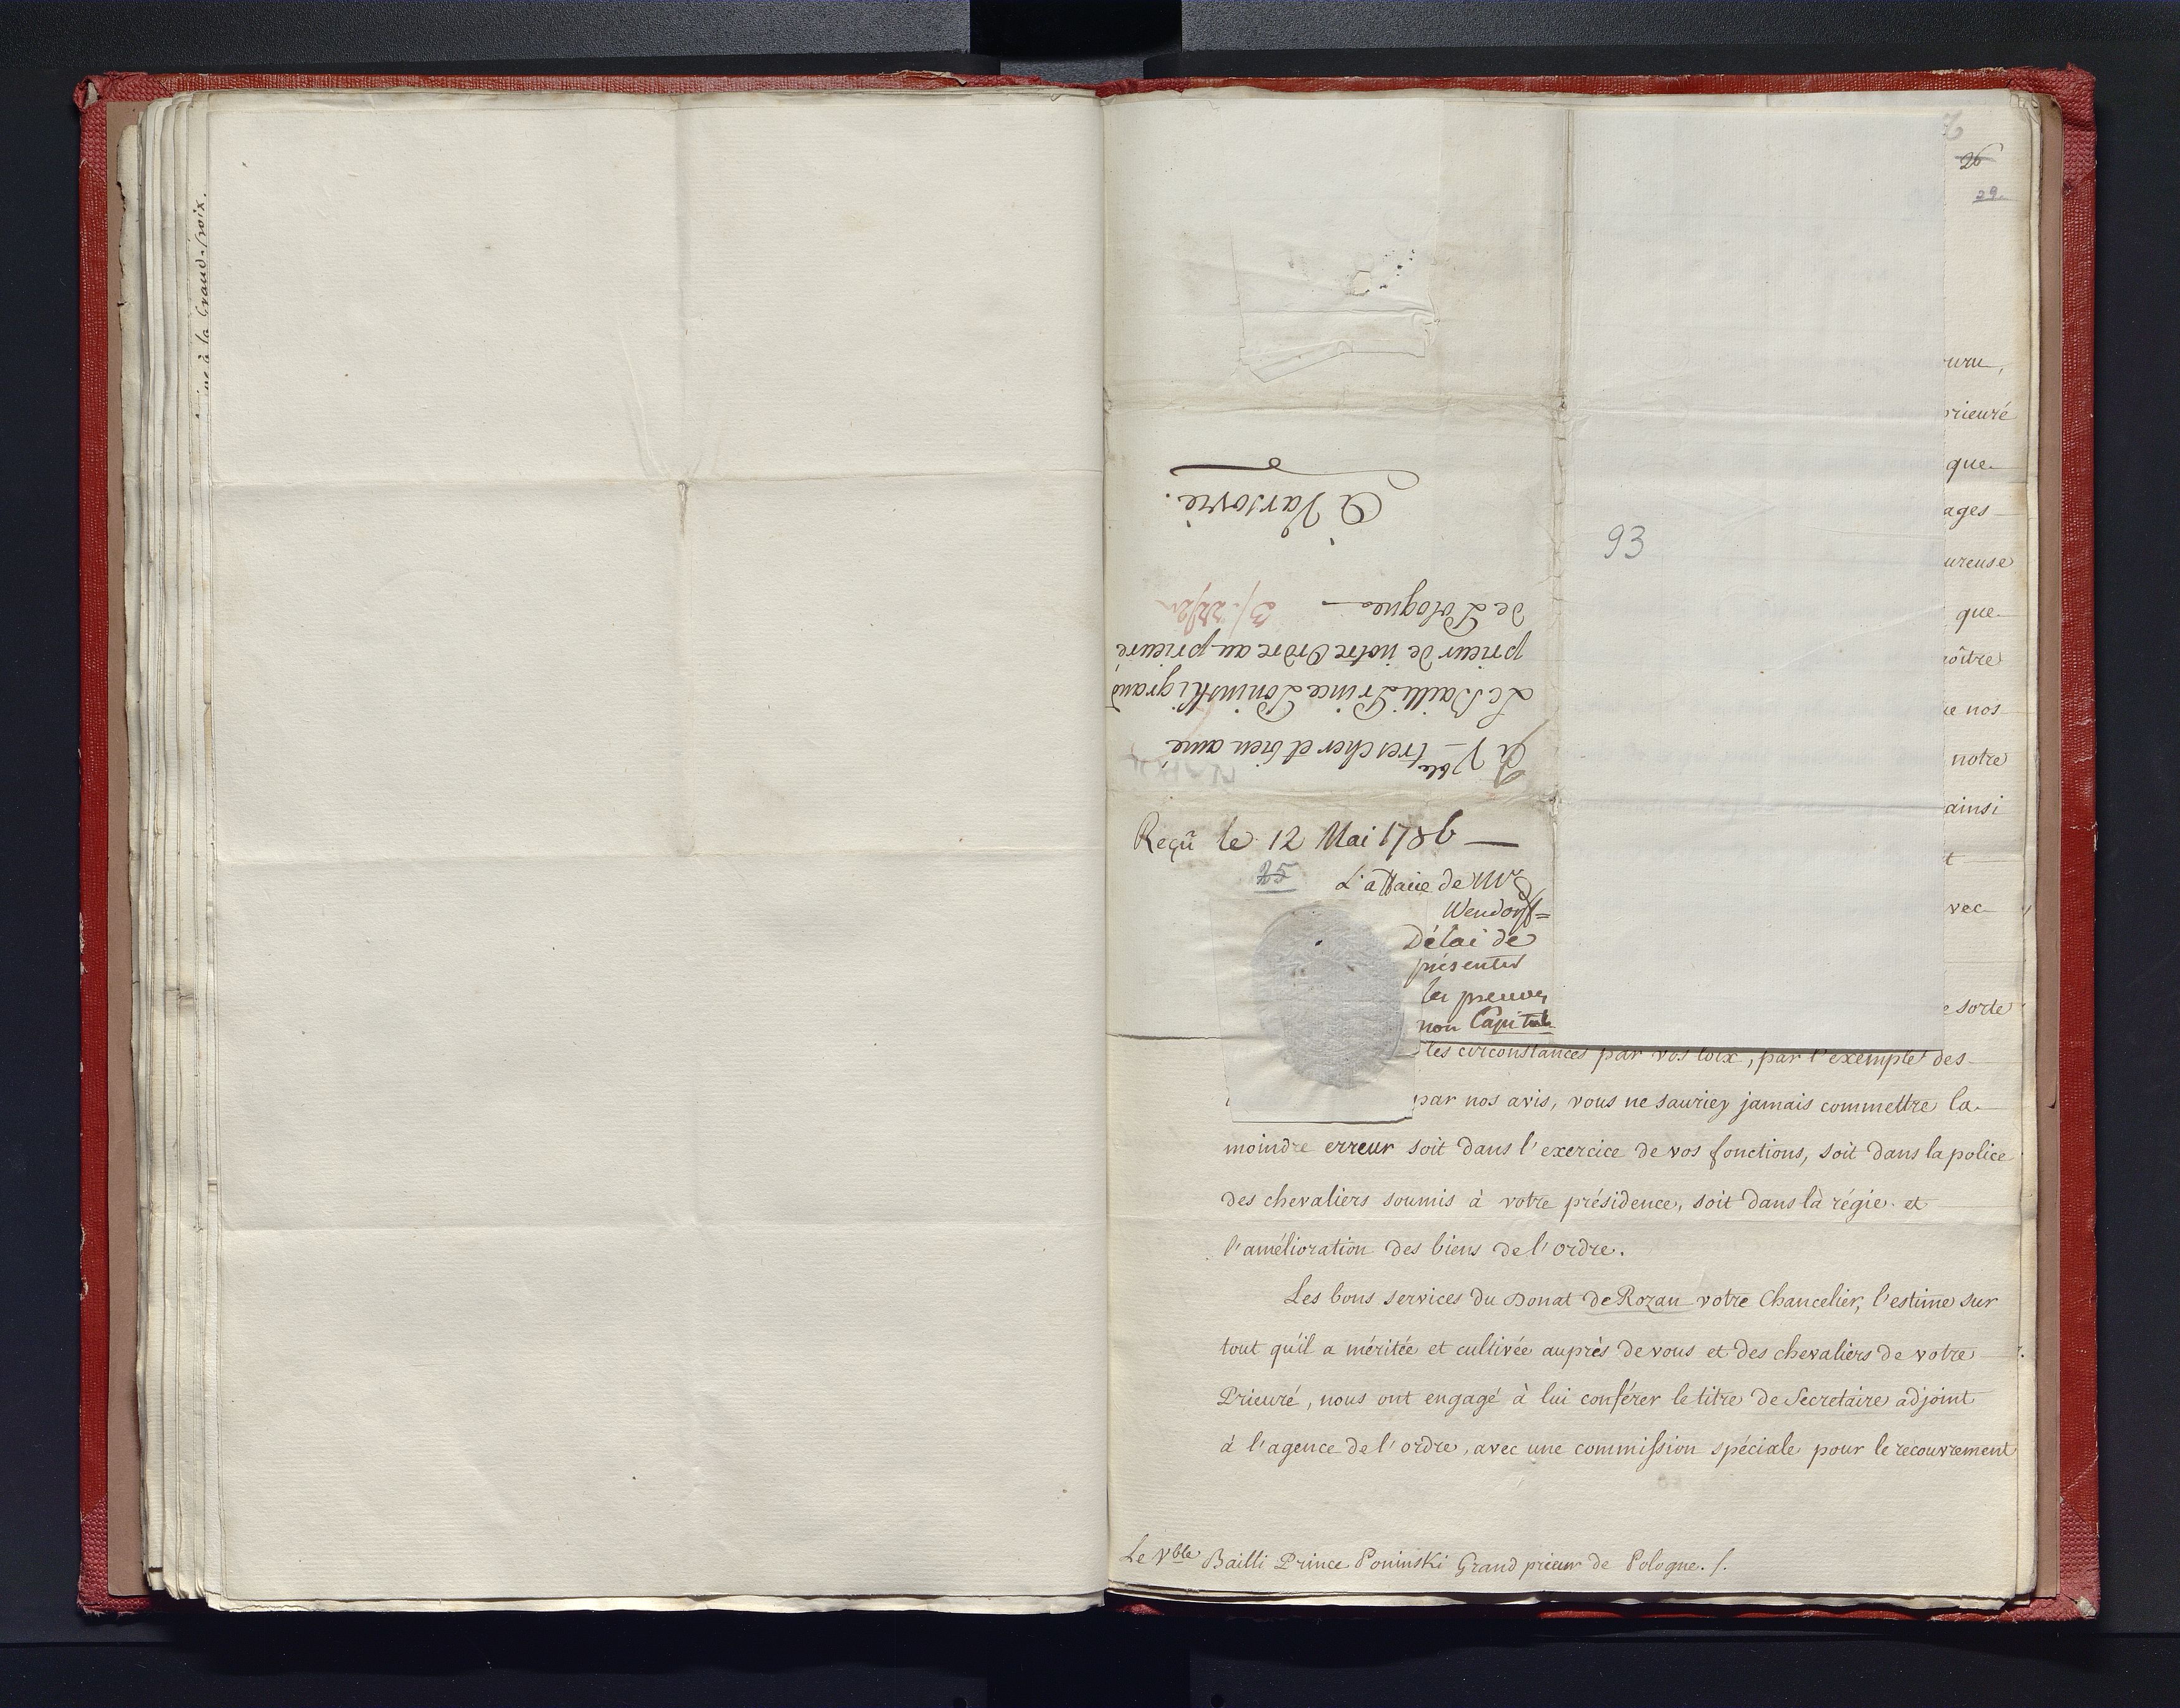 ne à la Grand-Croix.
26
29.
93
A Vble tres cher et bien amé
Le Bailli Prince Poninski grand
prieur de notre Ordre au prieuré
de Pologne
A Varsovie.
Reçû le 12 Mai 1786 —
25
L'affaire de Mr
Wendorff =
Délai de
présenter
les preuves
non Capitul
uru,
rieuré
que
ages
ureuse
que
oître
ue nos
notre
ainsi
t
vec
e sorte
les circonstances par vos loix, par l'exemple des
par nos avis, vous ne sauriez jamais commettre la
moindre erreur soit dans l'exercice de vos fonctions, soit dans la police
des chevaliers soumis à votre présidence, soit dans la régie et
l'amélioration des biens de l'ordre.
Les bons services du Donat de Rozan votre Chancelier, l'estime sur
tout qu'il a méritée et cultivée auprès de vous et des chevaliers de votre
Prieuré, nous ont engagé à lui conférer le titre de Secretaire adjoint
à l'agence de l'ordre, avec une commission spéciale pour le recouvrement
Le Vble Bailli Prince Poninski Grand prieur de Pologne. /.